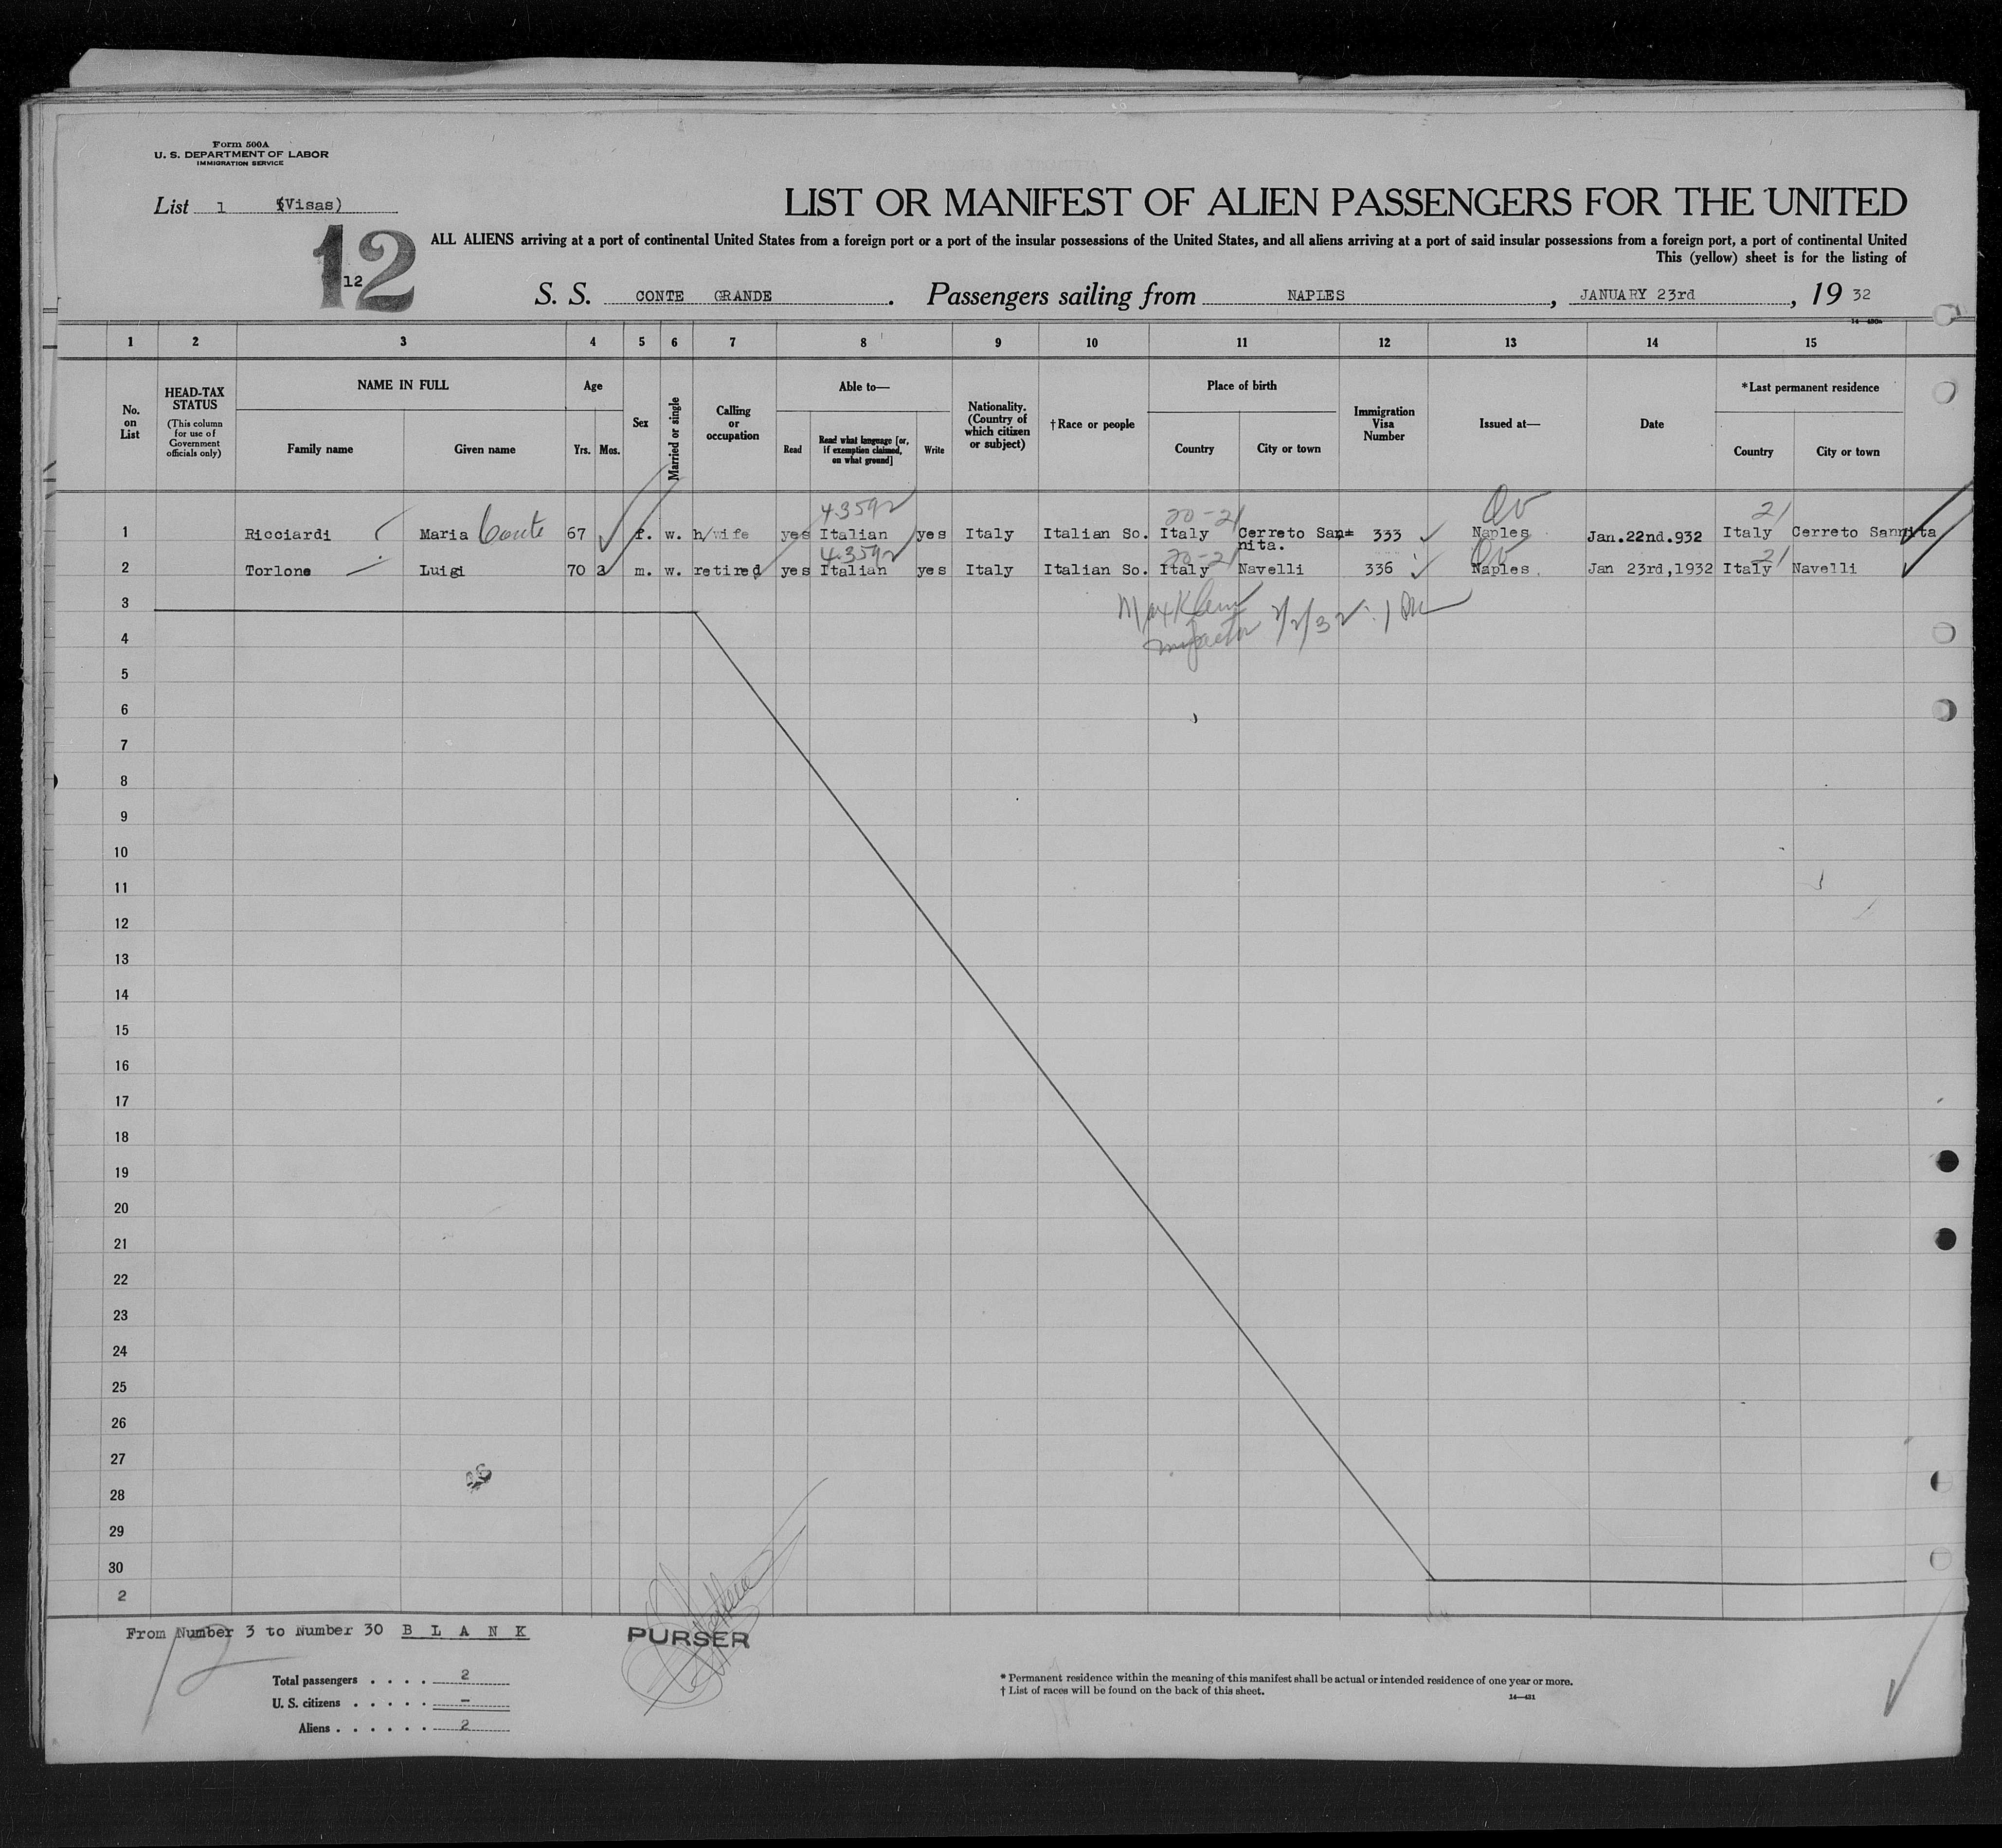 Form 500A
U. S. DEPARTMENT OF LABOR
IMMIGRATION SERVICE
List 1 (Visas)
LIST OR MANIFEST OF ALIEN PASSENGERS FOR THE UNITED
12
12
ALL ALIENS arriving at a port of continental United States from a foreign port or a port of the insular possessions of the United States, and all aliens arriving at a port of said insular possessions from a foreign port, a port of continental United
This (yellow) sheet is for the listing of
S. S. CONTE GRANDE . Passengers sailing from NAPLES , JANUARY 23rd , 19 32
1 2 3 4 5 6 7 8 9 10 11 12 13 14 15
No. on List
HEAD-TAX STATUS
(This column for use of Government officials only)
NAME IN FULL
Family name Given name
Age
Yrs. Mos.
Sex
Married or single
Calling or occupation
Able to—
Read
Read what language [or, if exemption claimed, on what ground]
Write
Nationality. (Country of which citizen or subject)
†Race or people
Place of birth
Country City or town
Immigration Visa Number
Issued at—
Date
*Last permanent residence
Country City or town
43592 20-21 QV 21
1 Ricciardi Maria Conte 67 f. w. h/wife yes Italian yes Italy Italian So. Italy Cerreto San= 333 Naples Jan.22nd.932 Italy Cerreto Sannita
nita.
43592 20-21 QV 21
2 Torlone Luigi 70 3 m. w. retired yes Italian yes Italy Italian So. Italy Navelli 336 Naples. Jan 23rd,1932 Italy Navelli
Max Klein 2/2/32
Inspector
3
4
5
6
7
8
9
10
11
12
13
14
15
16
17
18
19
20
21
22
23
24
25
26
27
28
29
30
2
From Number 3 to Number 30 B L A N K
12
PURSER
Total passengers . . . . 2
U. S. citizens . . . . . –
Aliens . . . . . . 2
* Permanent residence within the meaning of this manifest shall be actual or intended residence of one year or more.
† List of races will be found on the back of this sheet.
14—431